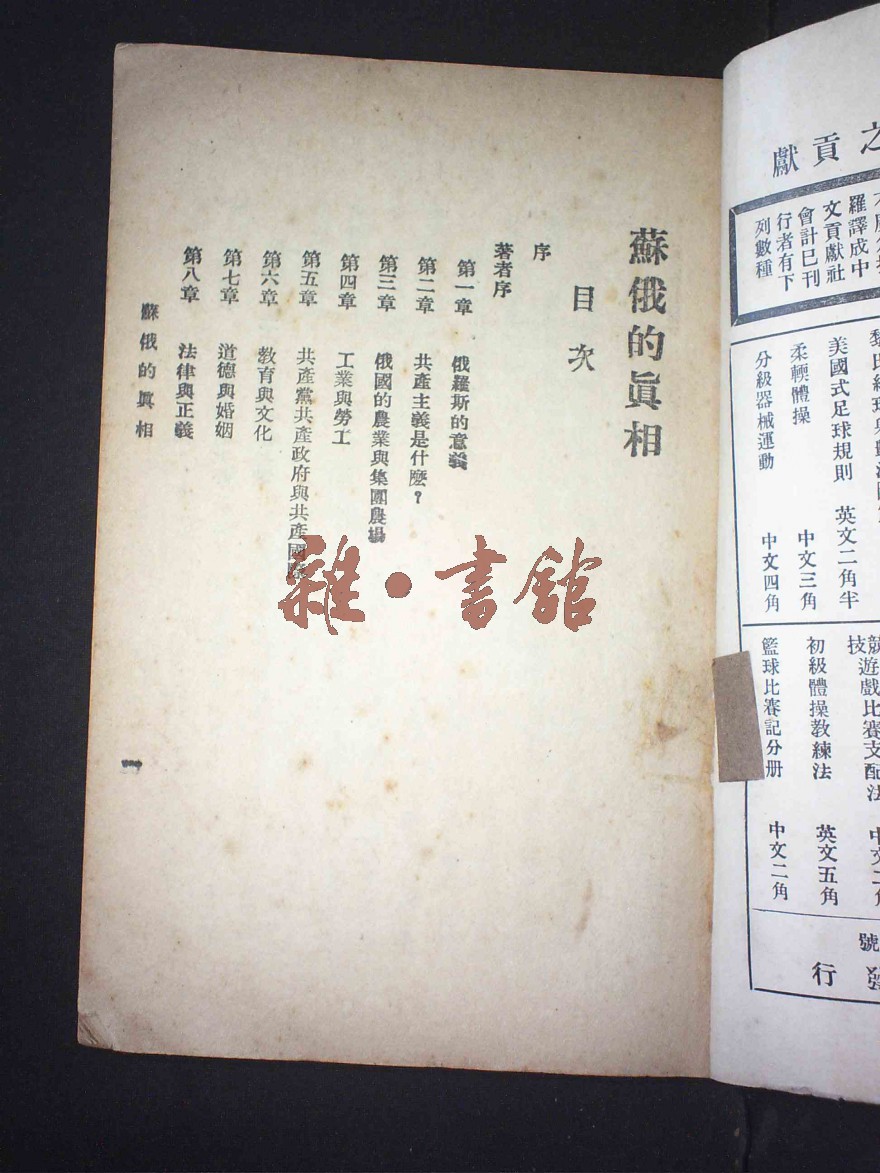 蘇俄的眞相
目次
序
著者序
第一章 俄羅斯的意義
第二章 共產主義是什麽?
第三章 俄國的農業與集團農場
第四章 工業與勞工
第五章 共產黨共產政府與共產國
第六章 教育與文化
第七章 道德與婚姻
第八章 法律與正義
蘇俄的眞相
一
雜·書館
之貢獻
羅譯成中
文貢獻社
會計已刊
行者有下
列數種
美國式足球規則 英文二角半
柔輭體操 中文三角
分級器械運動 中文四角
競遊戲比賽支配法
技
初級體操教練法 英文五角
籃球比賽記分册 中文二角
號
發行